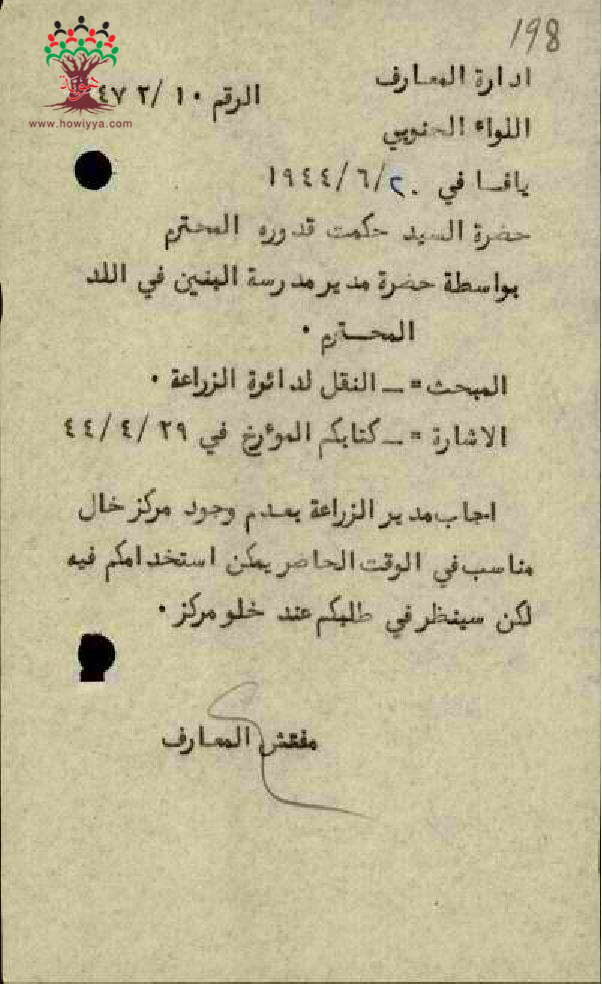 198
ادارة المعارف
الرقم ١٠ /٢ ٤٧
www.howiyya.com
اللواء الجنوبي
يافا في ٢٠/٦/١٩٤٤
حضرة السيد حكمت قدوره المحترم
بواسطة حضرة مدير مدرسة البنين في اللد
المحترم ٠
المبحث =_ النقل لدائرة الزراعة ٠
الاشارة =_ كتابكم المؤرخ في ٢٩ /٤/ ٤٤
اجاب مدير الزراعة بعدم وجود مركز خال
مناسب في الوقت الحاضر يمكن استخدامكم فيه
لكن سينظر في طلبكم عند خلو مركز ٠
مفتش المعارف